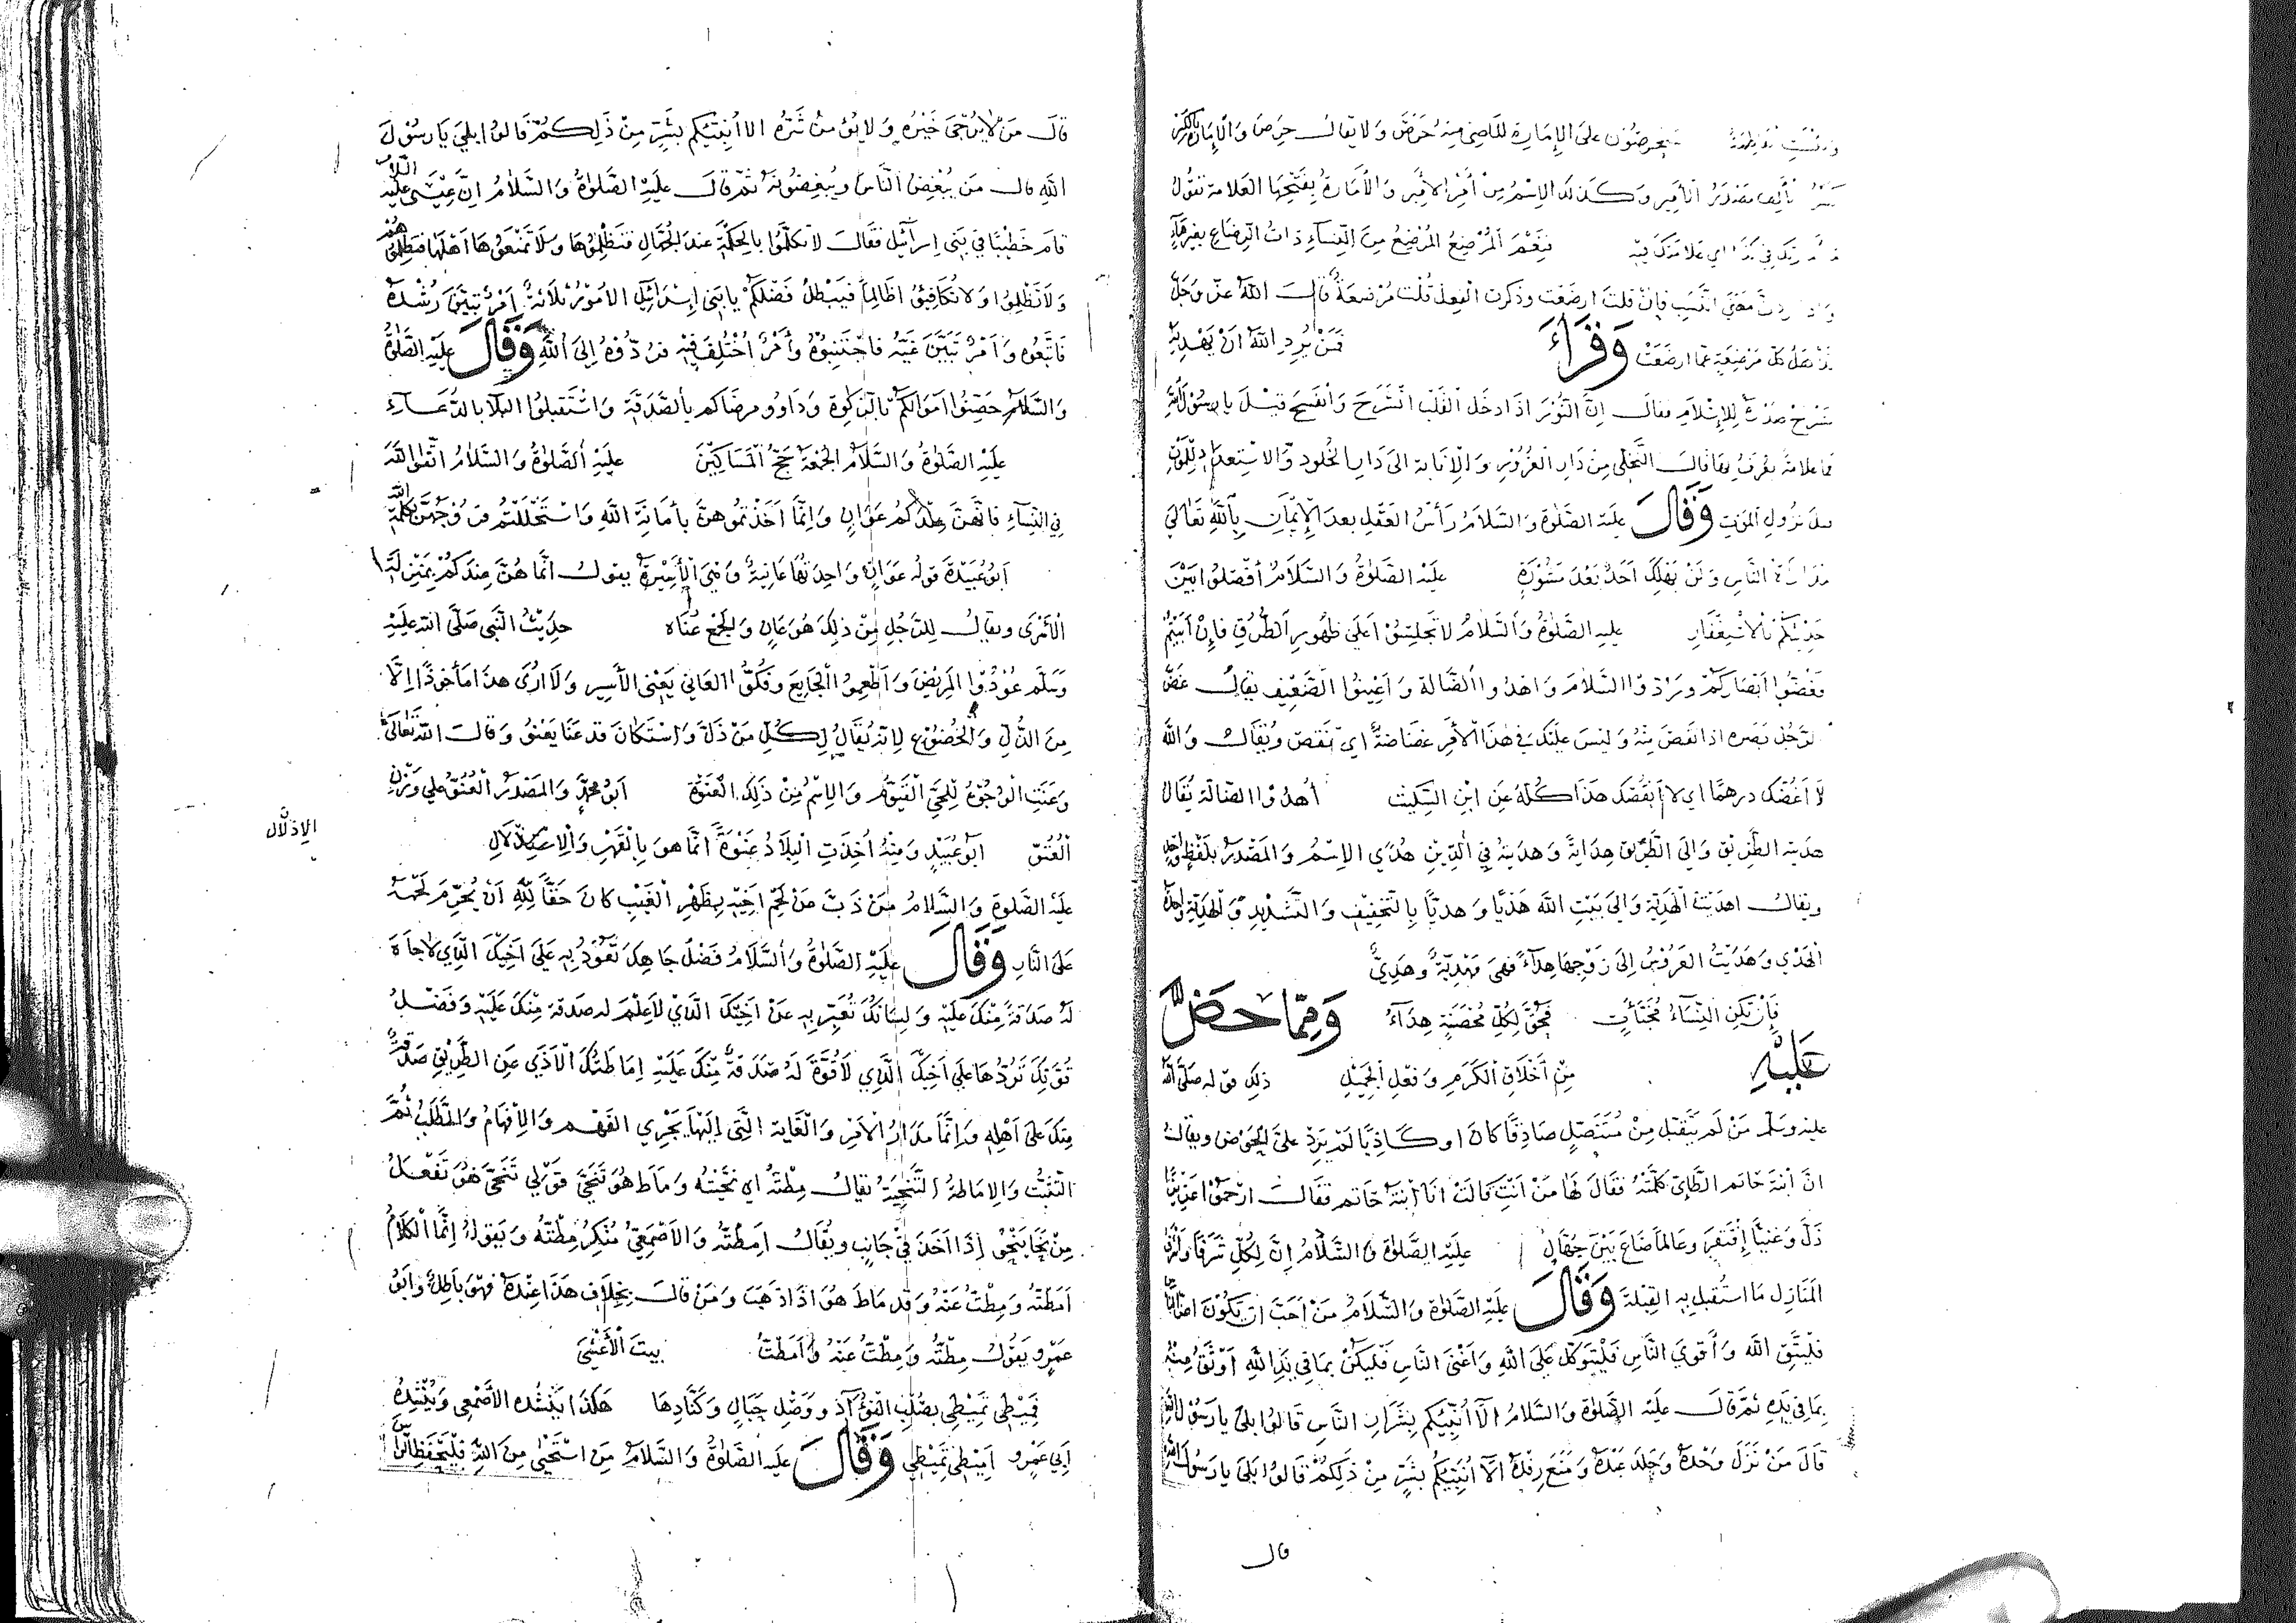 تَحرِصُون على الإِمَارَةِ للمَاضِي مِنهُ حَرَصَ وَلا يقالُ حرِصَ وَالإِمَارَة بالكَسْرِ
مَصْدَرُ الأمِير وَكَذلكَ الاِسْمُ مِنْ أَمِرَ الأمِير وَالأَمَارَةُ بِفَتْحِهَا العَلامة تقُولُ
فَنِعْمَ المُرْضِعُ المُرْضِعُ مِنَ النِّسَآءِ ذاتُ الرِّضَاعِ بغيرهَاءٍ
مَعْنَى النَّسَبِ فَإِنْ قلتَ ارضَعَت وذكرت الفِعلَ قُلْت مُرْضِعَةٌ قالَ اللهُ عزّ وَجَلّ
تَذْهَلُ كلّ مُرضِعَةٍ عمّا ارضَعَتْ وَقَرَأَ فَمَنْ يُرِدِ اللهُ أَنْ يَهْدِيَهُ
يَشْرَحْ صَدْرَهُ لِلإِسْلَامِ فقالَ اِنَّ النُّوْرَ اِذَا دخَل القَلْبَ انْشَرَحَ وَانْفَسَحَ قِيْلَ يا رسُوْل الله
فما علامة يعْرَفُ بِهَا قالَ التَّجَافي مِنْ دَارِ الغُرُوْرِ وَالإِنَابَة الى دَارِ الخُلود وَالاسْتِعدَاد لِلْمَوْتِ
قبلَ نزُولِ المَوتِ وَقَالَ عليه الصَّلوةُ وَالسَّلَامُ رَأْسُ العَقْلِ بعدَ الإِيْمَانِ بِاللهِ تعَالى
مُدَارَاة النَّاسِ وَلَنْ يَهْلِكَ اَحَدٌ بَعْدَ مَشُوْرَةٍ عليْهِ الصَّلوةُ وَالسَّلَامُ اَفْصِلُوا بَيْنَ
حَدِيْثِكُمْ بالاسْتِغْفَارِ عليهِ الصَّلوةُ وَالسَّلَامُ لا تَجْلِسُوْا عَلَى ظُهُورِ الطُّرُقِ فاِنْ اَبَيْتُمْ
فَغُضُّوا اَبْصَارَكُمْ وَرُدّوا السَّلَامَ وَاهْدُوا الضَّالَّة وَاَعِيْنُوا الضَّعِيْفَ يقالُ غَضَّ
الرَّجُل بَصَره اذا نقَصَ مِنْهُ وَلَيْسَ عَليْكَ في هَذَا الأَمْرِ غضَاضَةٌ ايْ نَقْص وَيُقَالُ وَاللهِ
لا اَغُضُّكَ درهمًا اي لا اَنْقُصُكَ هذَا كُلّهُ عَنِ ابْنِ السِّكِّيْت اُهْدُوْا الضَّالَّة يُقَالُ
هدَيته الطَّرِيْق وَالى الطَّرِيْق هِدَايَةً وَهدَيتهُ فِي الدِّيْنِ هُدًى الاِسْمُ وَالمَصْدَرُ بِلَفْظٍ وَاحِدٍ
ويقالُ اهدَيْتُ الهَدِيّة وَالى بَيْتِ اللهِ هَدْيًا وَهدِيًّا بِالتَّخْفِيْفِ وَالتَّشْدِيْدِ وَالهَدِيَّة وَاحِدَة
الهَدْيِ وَهَدَيْتُ العَرُوْسَ اِلَى زَوْجِهَا هِدَآءً فَهِيَ مَهْدِيَّةٌ وَهَدِيٌّ
فَإِنْ تَكُنِ النِّسَآءُ مُخَبَّآتٍ فَحُقَّ لِكُلِّ مُحْصَنَةٍ هِدَآءُ وَمِمَّا حَضَّ
عَلَيْهِ مِنْ أَخْلَاقِ الكَرَمِ وَفِعْلِ الجَمِيْلِ ذلك قوله صَلَّى الله
عليه وسَلم مَنْ لَم يَقْبَل مِنْ مُتَنَصِّلٍ صَادِقًا كَانَ اوْ كَاذِبًا لَمْ يَرِدْ عليّ الحَوْضَ ويقالُ
انّ ابْنَةَ حَاتم الطَّائِيّ كَلَّمَتْهُ فَقَالَ لهَا مَنْ اَنْتِ قَالَتْ اَنَا ابْنَةُ حَاتم فقالَ ارْحَمُوْا عَزِيْزًا
ذَلَّ وَغَنِيًّا اِفْتَقَرَ وَعَالمًا ضَاعَ بَيْنَ جُهَّالٍ عليْهِ الصَّلوةُ وَالسَّلَامُ اِنَّ لِكُلٍّ شَرَفًا وَاَشْرَفُ
المَنَازِلِ مَا اسْتُقْبِلَ بِهِ القِبْلَة وَقَالَ عليْهِ الصَّلوةُ وَالسَّلَامُ مَنْ اَحَبَّ ان يَكُوْنَ
فليَتَّقِ اللهَ وَاَقْوَى النَّاسِ فَلْيَتَوَكَّلْ عَلَى اللهِ وَاَغْنَى النَّاسِ فَلْيَكُنْ بِمَا فِي يَدِ اللهِ اَوْثَقُ مِنْهُ
بِمَا فِي يَدِهِ ثمّ قالَ عَليْهِ الصَّلوةُ وَالسَّلَامُ اَلَا اُنَبِّئُكُم بِشَرَارِ النَّاسِ قَالُوا بلى يا رسُوْل الله
قَالَ مَنْ نَزَلَ وَحْدَهُ وَجَلَدَ عَبْدَهُ وَمَنَعَ رِفْدَهُ اَلَا اُنَبِّئُكُمْ بِشَرٍّ مِنْ ذَلِكُمْ قَالُوا بَلَى يا رَسُوْلَ الله
قال
قَالَ مَنْ لَا يُرْجَى خَيْرُهُ وَلا يُؤمَنُ شَرُّهُ الا اُنَبِّئُكُم بشَرٍّ مِنْ ذَلِكُمْ قَالُوا بلى يَا رسُوْلَ
اللهِ قال مَن يُبْغِضُ النَّاسَ وَيُبْغِضُوْنَهُ ثمّ قالَ عليْهِ الصَّلوةُ وَالسَّلَامُ اِنَّ عِيْسَى عليه السّلام
قامَ خَطِيْبًا في بَنِي اِسرَائيْلَ فقَالَ لا تكلّمُوا بالحِكْمَةِ عند الجُهَّالِ فَتَظْلِمُوْهَا وَلَا تَمْنَعُوْهَا اَهْلَهَا فَتَظْلِمُوْهُمْ
وَلَا تَظْلِمُوا وَلا تُكَافِئُوْا ظَالِمًا فَيَبْطُلَ فَضْلُكُمْ يا بَنِي اِسْرَائِيْلَ الأمُوْرُ ثلَاثَةٌ اَمْرٌ تبَيَّنَ رُشْدُهُ
فَاتَّبِعُوْهُ وَاَمْرٌ تَبَيَّنَ غَيُّهُ فاجْتَنِبُوْهُ وَأَمْرٌ اخْتُلِفَ فِيْهِ فرُدّوْهُ اِلَى اللهِ وَقَالَ عليْهِ الصَّلوةُ
وَالسَّلَامُ حَصِّنُوا اَمْوَالَكُمْ بالزَّكوةِ وَدَاوُوا مرضَاكم بِالصَّدَقَةِ وَاسْتَقْبِلُوا البَلآءَ بالدُّعَآءِ
عليْهِ الصَّلوةُ وَالسَّلَامُ الجُمُعَة حَجُّ المَسَاكِيْن عليْهِ الصَّلوةُ وَالسَّلَامُ اتّقُوا اللهَ
فِي النِّسَآءِ فَاِنَّهُنَّ عِنْدَكُمْ عَوَانٍ وَاِنَّمَا اَخَذْتُمُوْهُنَّ بأَمَانَةِ اللهِ وَاسْتَحْلَلْتُم فُرُوْجَهُنَّ بكلمة الله
اَبُوْ عُبَيْدَة قوله عَوَانٍ وَاحِدَتُهَا عَانِيَةٌ وَهِيَ الأَسِيْرَةُ يقولُ اِنَّمَا هُنَّ عِنْدَكُمْ بِمَنْزِلَةِ
الأَسْرَى ويقالُ للرَّجُلِ مِنْ ذلِكَ هُوَ عَانٍ وَالجَمْعُ عُنَاة حدِيْثُ النَّبِي صَلَّى اللهُ عليْهِ
وَسَلم عُوْدُوا المَرِيْضَ وَاَطْعِمُوا الجَايِعَ وفُكُّوا العَانِي يَعْنِي الأَسِير وَلا ارَى هذا مَأْخُوْذًا اِلَّا
مِنَ الذُّلِّ وَالخُضُوْعِ لِاَنَّهُ يُقَالُ لِكُلِّ مَنْ ذَلَّ وَاسْتَكَانَ قد عَنَا يَعْنُوْ وَقالَ اللهُ تعَالَى
وَعَنَتِ الوُجُوْهُ لِلْحَيِّ القَيُّوْمِ وَالاِسْمُ مِنْ ذَلِكَ العَنْوَة اَبُوْ محمّدٍ وَالمَصْدَرُ العُنُوُّ على وَزْنِ
العُتُوّ اَبُوْ عُبَيْدٍ وَمِنْهُ اُخِذَتِ البِلَادُ عَنْوَةً اِنَّمَا هُوَ بِالقَهْرِ وَالاِ ذلَالِ
الإِذلَال
عليْهِ الصَّلوةُ وَالسَّلَامُ مَنْ ذَبَّ عَنْ لَحْمِ اَخِيْهِ بِظَهْرِ الغَيْبِ كانَ حَقًّا لِلّهِ اَنْ يُحَرِّمَ لَحْمَهُ
عَلَى النَّارِ وَقَالَ عليْهِ الصَّلوةُ وَالسَّلَامُ فَضْلُ جَاهِكَ تَعُوْدُ بِهِ عَلَى اَخِيْكَ الَّذِي لَا جَاهَ
لَهُ صَدَقَةٌ مِنْكَ عَليْهِ وَلِسَانُكَ تُعَبِّرُ بِهِ عَنْ اَخِيْكَ الَّذِيْ لَا عِلْمَ له صَدقَة مِنْكَ عَليْهِ وَفَضْلُ
قُوَّتِكَ تَرُدُّهَا عَلَى اَخِيْكَ الَّذِي لَا قُوَّةَ لَهُ صَدَقَةٌ مِنْكَ عَليْهِ اِمَاطَتُكَ الأَذَى عَنِ الطَّرِيْقِ صَدَقَةٌ
مِنْكَ عَلَى اَهْلِهِ وَاِنَّمَا مَدَارُ الأمْرِ وَالغَايَة الَّتِي اِلَيْهَا يَجْرِي الفَهْم وَالإِفْهَامُ وَالطَّلَبُ ثُمَّ
التّثَبُّتُ وَالإِمَاطَةُ التَّنْحِيَةُ يقالُ مِطْتُهُ اي نَحَّيْتُهُ وَمَاطَ هُوَ تَنَحَّى قوْلي تَنَحَّى هُوَ تَفْعَّلَ
مِنْ نَحَا يَنْحُوْ اِذَا اَخَذَ فِيْ جَانِبٍ ويُقَالُ اَمَطْتُهُ وَالأَصْمَعِيُّ مُنْكِرٌ مِطْتُهُ وَيَقُوْلُ اِنَّمَا الكَلَامُ
اَمَطْتُهُ وَمِطْتُ عَنْهُ وَقد مَاطَ هُوَ اذَا ذَهَبَ وَمَنْ قالَ بِخِلَافِ هَذَا عِنْدَهُ فهُوَ بَاطِلٌ وَابُوْ
عَمْرٍو يَقُوْلُ مِطْتُهُ وَمِطْتُ عَنْهُ وَاَمَطْتُ بيت الأَعْشَى
فَمِيْطِي تَمِيْطِي بصُلْبِ الفُؤَادِ وَوَصْلِ حِبَالٍ وَكَنَّادِهَا هَكَذَا يُنْشِدُه الأَصْمَعِي وَيُنْشِدُهُ
اَبِي عَمْرٍو اَمِيْطِي تَمِيْطِي وَقَالَ عليْهِ الصَّلوةُ وَالسَّلَامُ مَنِ اسْتَحْيَى مِنَ اللهِ فَلْيَحْفَظِ الرَّأْسَ